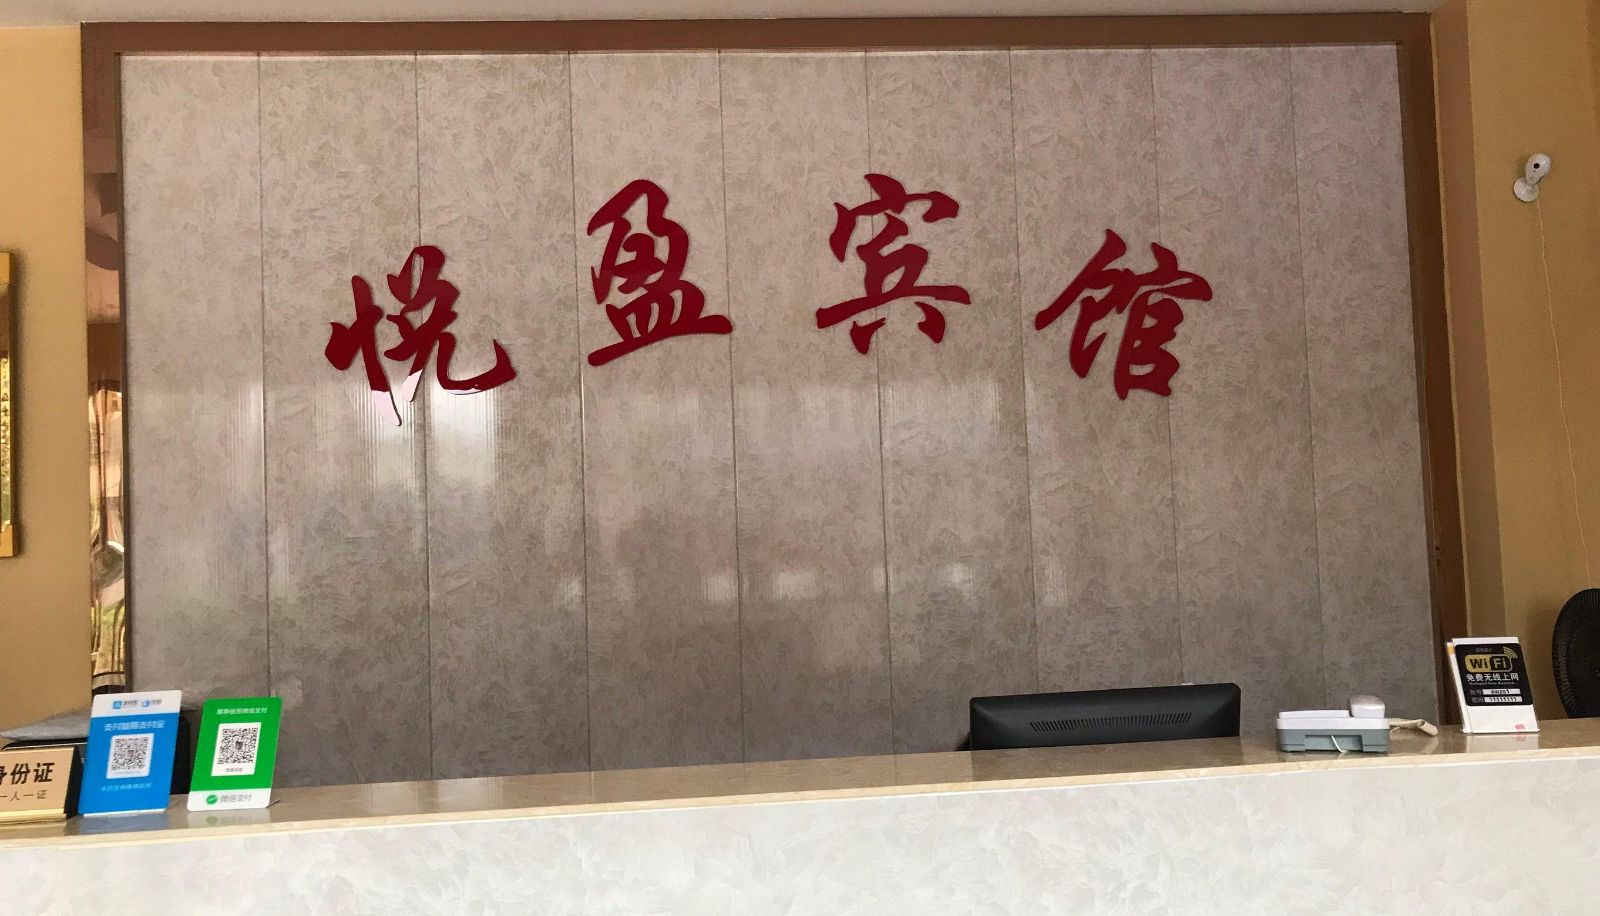 悦盈宾馆
身份证
一人一证
支付就用支付宝
推荐使用微信支付
微信支付
WiFi
免费无线上网
账号
密码 11111111